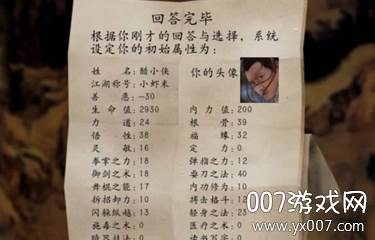 回答完毕
根据你刚才的回答与选择,系统
设定你的初始属性为:
姓 名:醋小侠 你的头像
江湖称号:小虾米
善 恶:-30
生 命 值:2930 内 力 值:200
力 道:24 根 骨:39
悟 性:38 福 缘:32
灵 敏:16 定 力:0
拳掌之力:18 弹指之力:12
御剑之术:18 耍刀之法:40
舞棍之能:17 内功修为:10
拆招卸力: 搏击格斗:12
闪躲纵越:13 轻身之法:23
施毒之术:0 医疗之术:0
007游戏网
www.yx007.com